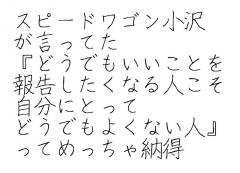 スピードワゴン小沢
が言ってた
『どうでもいいことを
報告したくなる人こそ
自分にとって
どうでもよくない人』
ってめっちゃ納得